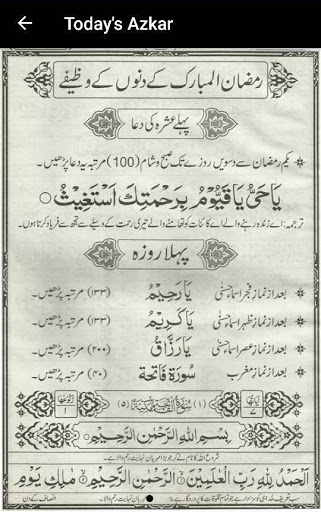 Today's Azkar
رمضان المبارک کے دنوں کے وظیفے
پہلے عشرہ کی دعا
یکم رمضان سے دسویں روزے تک صبح و شام (100) مرتبہ یہ دعا پڑھیں۔
يَاحَىُّ يَاقَيُّوْمُ بِرَحْمَتِكَ اَسْتَغِيْثُ
ترجمہ: اے زندہ رہنے والے اے کائنات کو تھامنے والے تیری رحمت کے وسیلے سے تجھ سے فریاد کرتا ہوں۔
پہلا روزہ
بعد از نماز فجر اسماء حسنٰی يَارَحِيْمُ (۱۳۳) مرتبہ پڑھیں۔
بعد از نماز ظہر اسماء حسنٰی يَاكَرِيْمُ (۱۳۳) مرتبہ پڑھیں۔
بعد از نماز عصر اسماء حسنٰی يَارَزَّاقُ (۲۰۰) مرتبہ پڑھیں۔
بعد از نماز مغرب سُوْرَة فَاتِحَة (۴۰) مرتبہ پڑھیں۔
۷ (۱) سُوْرَةُ الْفَاتِحَةِ مَكِّيَّةٌ (۵) ۱
بِسْمِ اللهِ الرَّحْمٰنِ الرَّحِيْمِ
شروع اللہ کے نام سے جو بڑا مہربان نہایت رحم والا ہے۔
اَلْحَمْدُ لِلّٰهِ رَبِّ الْعٰلَمِيْنَ الرَّحْمٰنِ الرَّحِيْمِ مٰلِكِ يَوْمِ